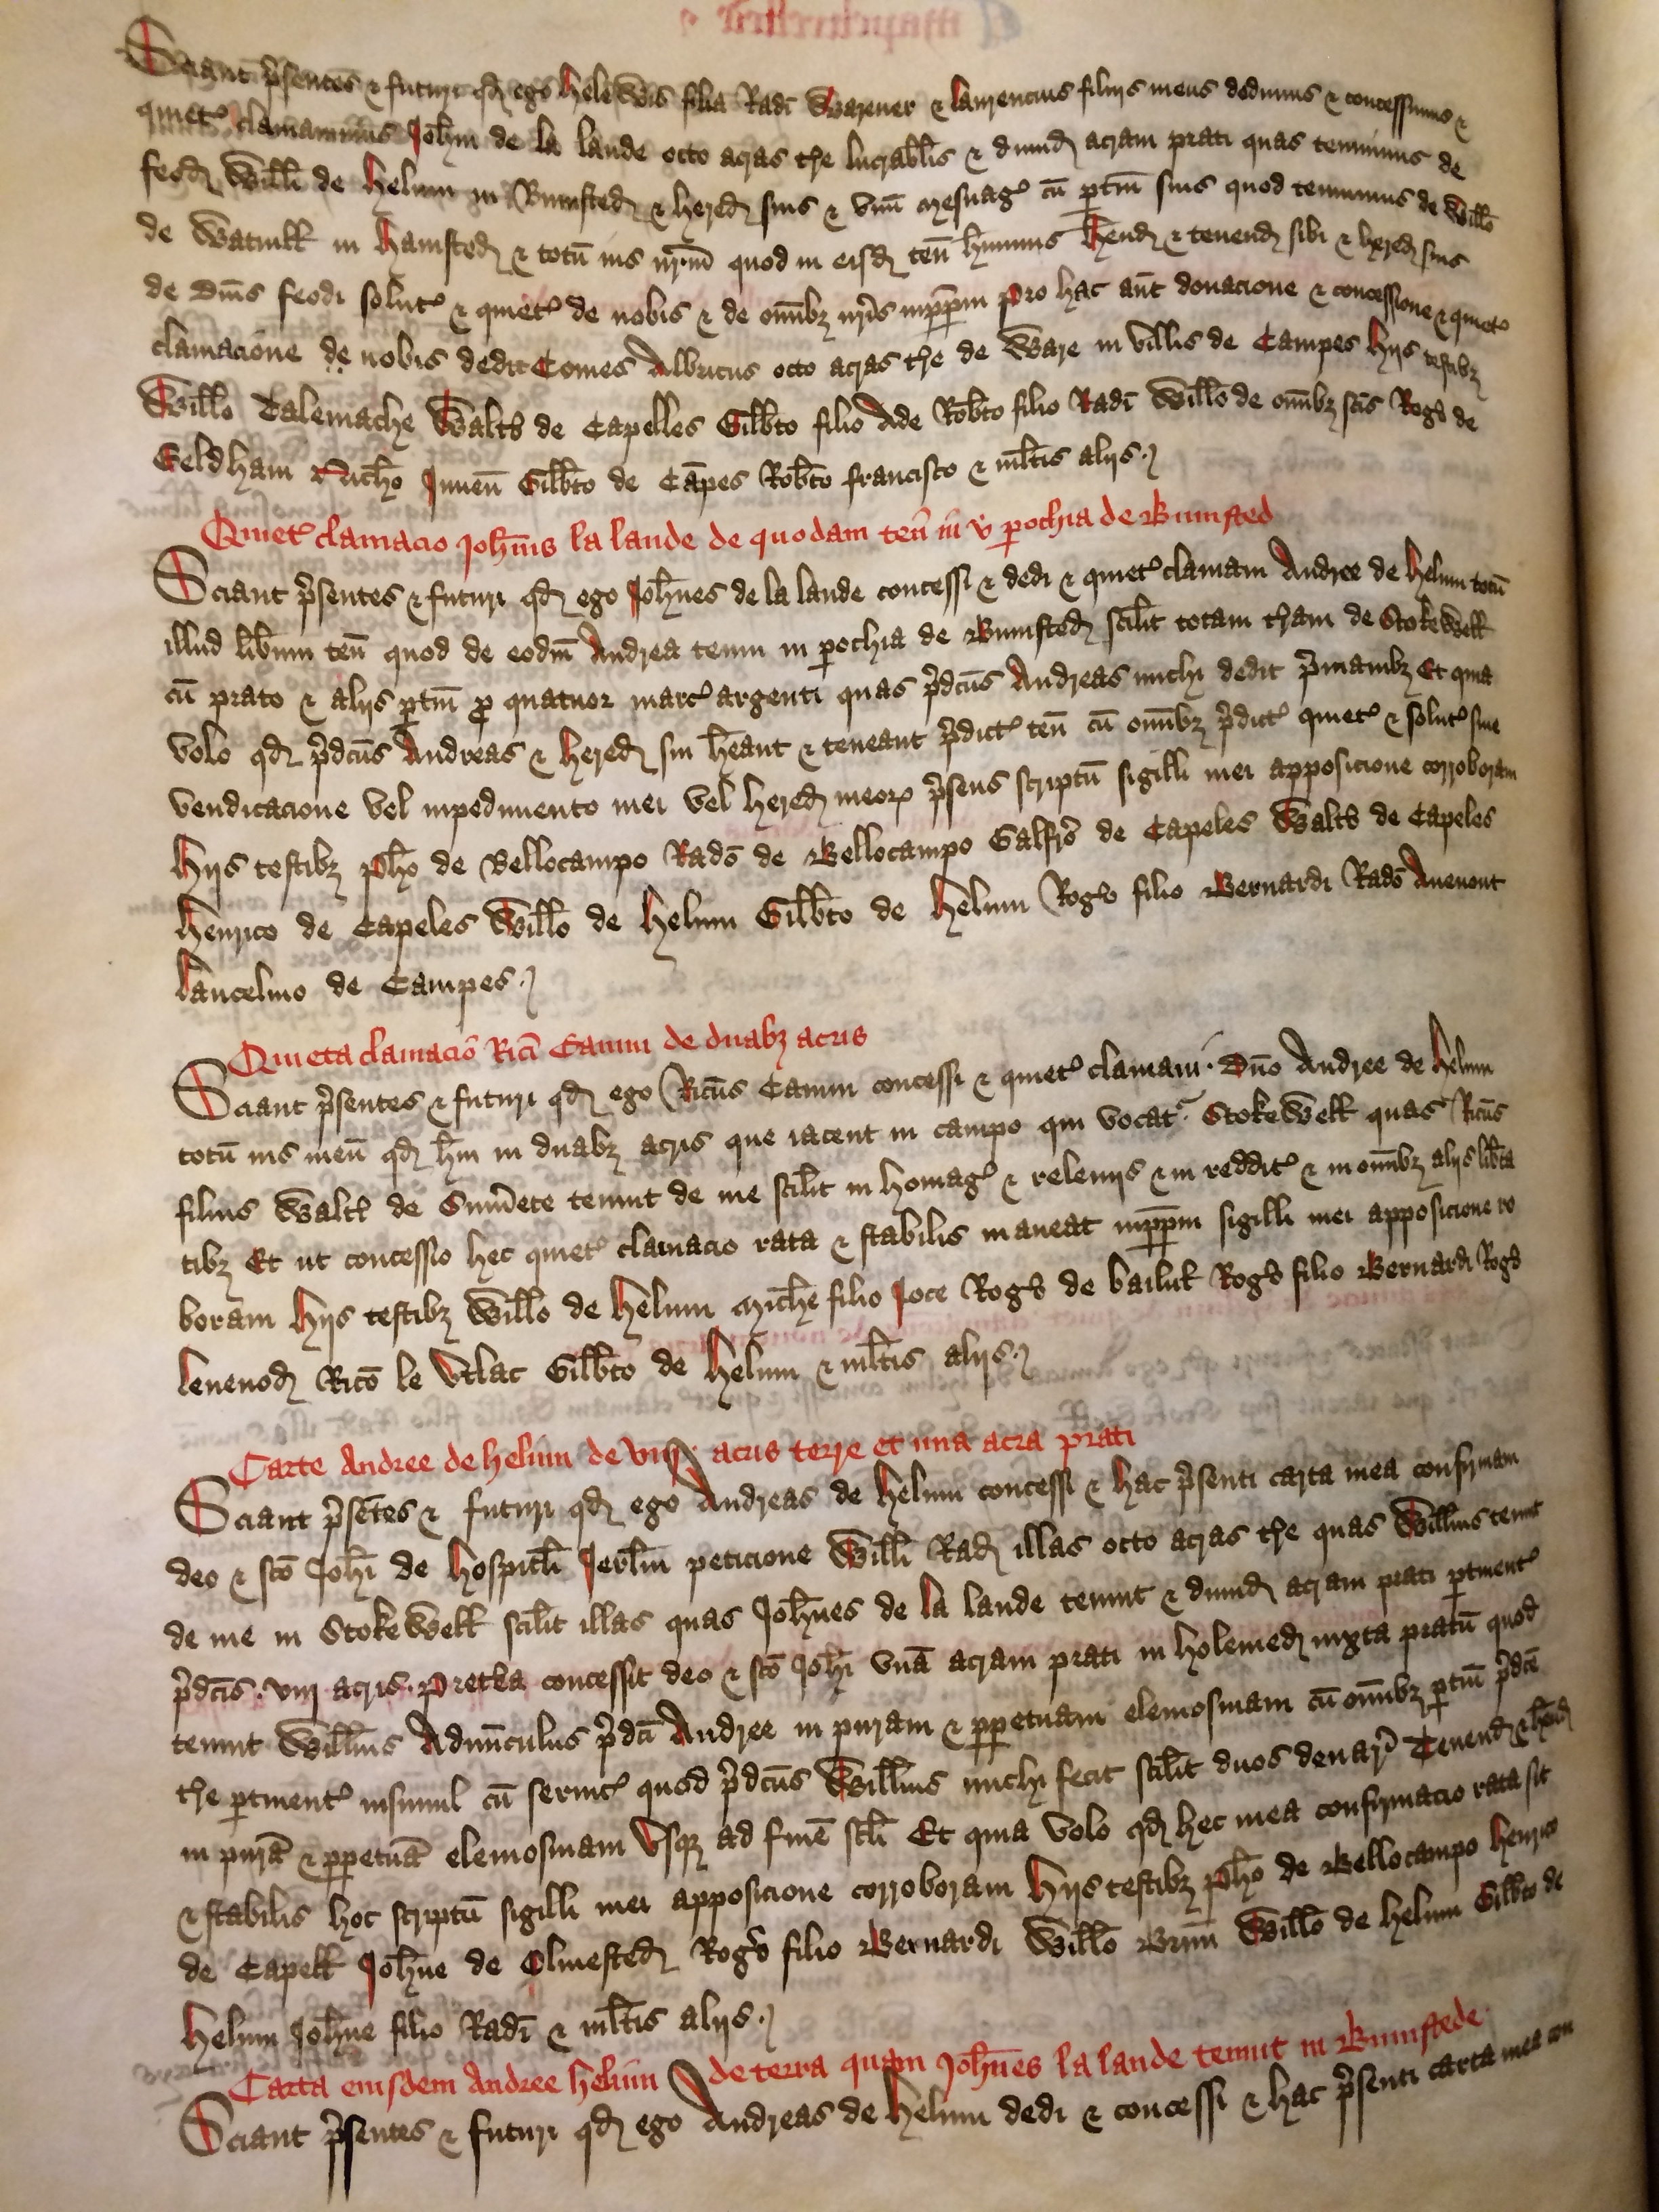 Sciant p̄sentes & futuri qd ego Helewis filia Radi Warener & laurencius filius meus dedimus & concessimus &
quiet' clamauimus Joh̄m de la lande octo acras t̄re lucrabl̄is & dimid acram prati quas tenuimus de
feod Willi de Helium in Bumsted & hered suis & vnū mesuag' cū ptin̄ suis quod tenuimus de Willo
de Watuill in Hamsted & totū ius nr̄m quod in eisd ten̄ h̄uimus h̄end & tenend sibi & hered suis
de Dn̄is feodi solut' & quiet' de nobis & de omībz nr̄is inppm Pro hac aūt donacione & concessione & quiet'
clamacione de nobis dedit Comes Albricus octo acras t̄re de Ware in villis de Campes Hijs testibz
Willo Talemache Walto de Capelles Gilb̄to filio Ade Rob̄to filio Radi Willo de omībz scīs Rogo de
Geldham Nich̄o Juuen̄ Gilb̄to de Cāpes Rob̄to francisco & ml̄tis alijs
Quiet' clamacio Joh̄nis la lande de quodam ten̄ in pochia de Bumsted
Sciant p̄sentes & futuri qd ego Joh̄nes de la lande concessi & dedi & quiet' clamaui Andree de Helium totū
illud lib̄um ten̄ quod de eodm̄ Andrea tenui in pochia de Bumsted scil̄it totam t̄ram de Stokewell
cū prato & alijs ptin̄ p quatuor marc' argenti quas p̄dcūs Andreas michi dedit p̄manibz Et quia
volo qd p̄dcūs Andreas & hered sui h̄eant & teneant p̄dict' ten̄ cū omībz p̄dict' quiet' & solut' sine
vendicacione vel inpedimento mei vel hered meor' p̄sens scriptū sigilli mei apposicione corroboraui
Hijs testibz Ph̄o de Bellocampo Rado de Bellocampo Galfro de Capeles Walto de Capeles
Henrico de Capeles Willo de Helium Gilb̄to de Helium Rogo filio Bernardi Rado Auenont
lancelino de Campes
Quieta clamacio Rici Camin de duabz acris
Sciant p̄sentes & futuri qd ego Ricūs Camin concessi & quiet' clamaui Dn̄o Andree de Helium
totū ius meū qd h̄ui in duabz acris que iacent in campo qui vocat' Stokewell quas Ricūs
filius Walti de Sumete tenuit de me scil̄it in homag' & releuijs & in reddit' & in omībz alijs lib̄ta
tibz Et ut concessio hec quiet' clamacio rata & stabilis maneat inppm sigilli mei apposicione ro
boraui Hijs testibz Willo de Helium Mich̄e filio Joce Rogo de bailul Rogo filio Bernardi Rogo
leuenod Rico le Utlac Gilb̄to de Helium & ml̄tis alijs
Carte Andree de helium de viij acris terre et una acra prati
Sciant p̄sētes & futuri qd ego Andreas de Helium concessi & hac p̄senti carta mea confirmaui
deo & scō Joh̄i de Hospitl̄i Jerl̄m peticione Willi Rad illas octo acras t̄re quas Willms tenuit
de me in Stokewell scil̄it illas quas Joh̄nes de la lande tenuit & dimid acram prati ptinent'
p̄dcīs viij acris Pret̄ea concessit deo & scō Joh̄i vnā acram prati in Holemed iuxta pratū quod
tenuit Willms Aduūculus p̄dcī Andree in puram & ppetuam elemosinam cū omībz ptin̄ p̄dcē
t̄re ptinent' insimul cū seruic' quod p̄dcūs Willms michi fecit scil̄it duos denar' Tenend & h̄end
in purā & ppetuā elemosinam Vsqz ad finē scl̄i Et quia volo qd hec mea confirmacio rata sit
& stabilis hoc scriptū sigilli mei apposicione corroboraui Hijs testibz Ph̄o de Bellocampo Henrico
de Capell Joh̄ne de Olmested Rogo filio Bernardi Willo Brun̄ Willo de Helium Gilb̄to de
Helium Joh̄ne filio Radi & ml̄tis alijs
Carta eiusdem Andree helium de terra quam Joh̄nes la lande tenuit in Bumstede
Sciant p̄sentes & futuri qd ego Andreas de Helium dedi & concessi & hac p̄senti carta mea con